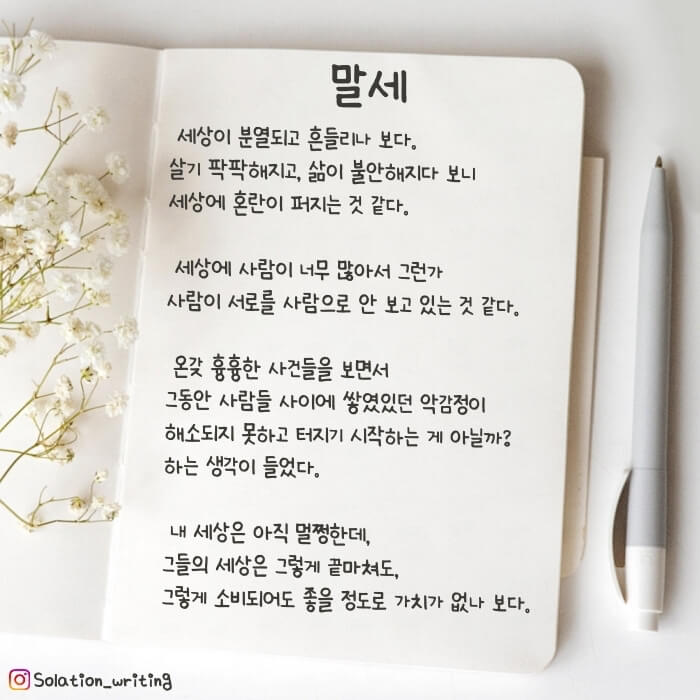 말세
세상이 분열되고 흔들리나 보다.
살기 팍팍해지고, 삶이 불안해지다 보니
세상에 혼란이 퍼지는 것 같다.
세상에 사람이 너무 많아서 그런가
사람이 서로를 사람으로 안 보고 있는 것 같다.
온갖 흉흉한 사건들을 보면서
그동안 사람들 사이에 쌓였있던 악감정이
해소되지 못하고 터지기 시작하는 게 아닐까?
하는 생각이 들었다.
내 세상은 아직 멀쩡한데,
그들의 세상은 그렇게 끝마쳐도,
그렇게 소비되어도 좋을 정도로 가치가 없나 보다.
@Solation_writing